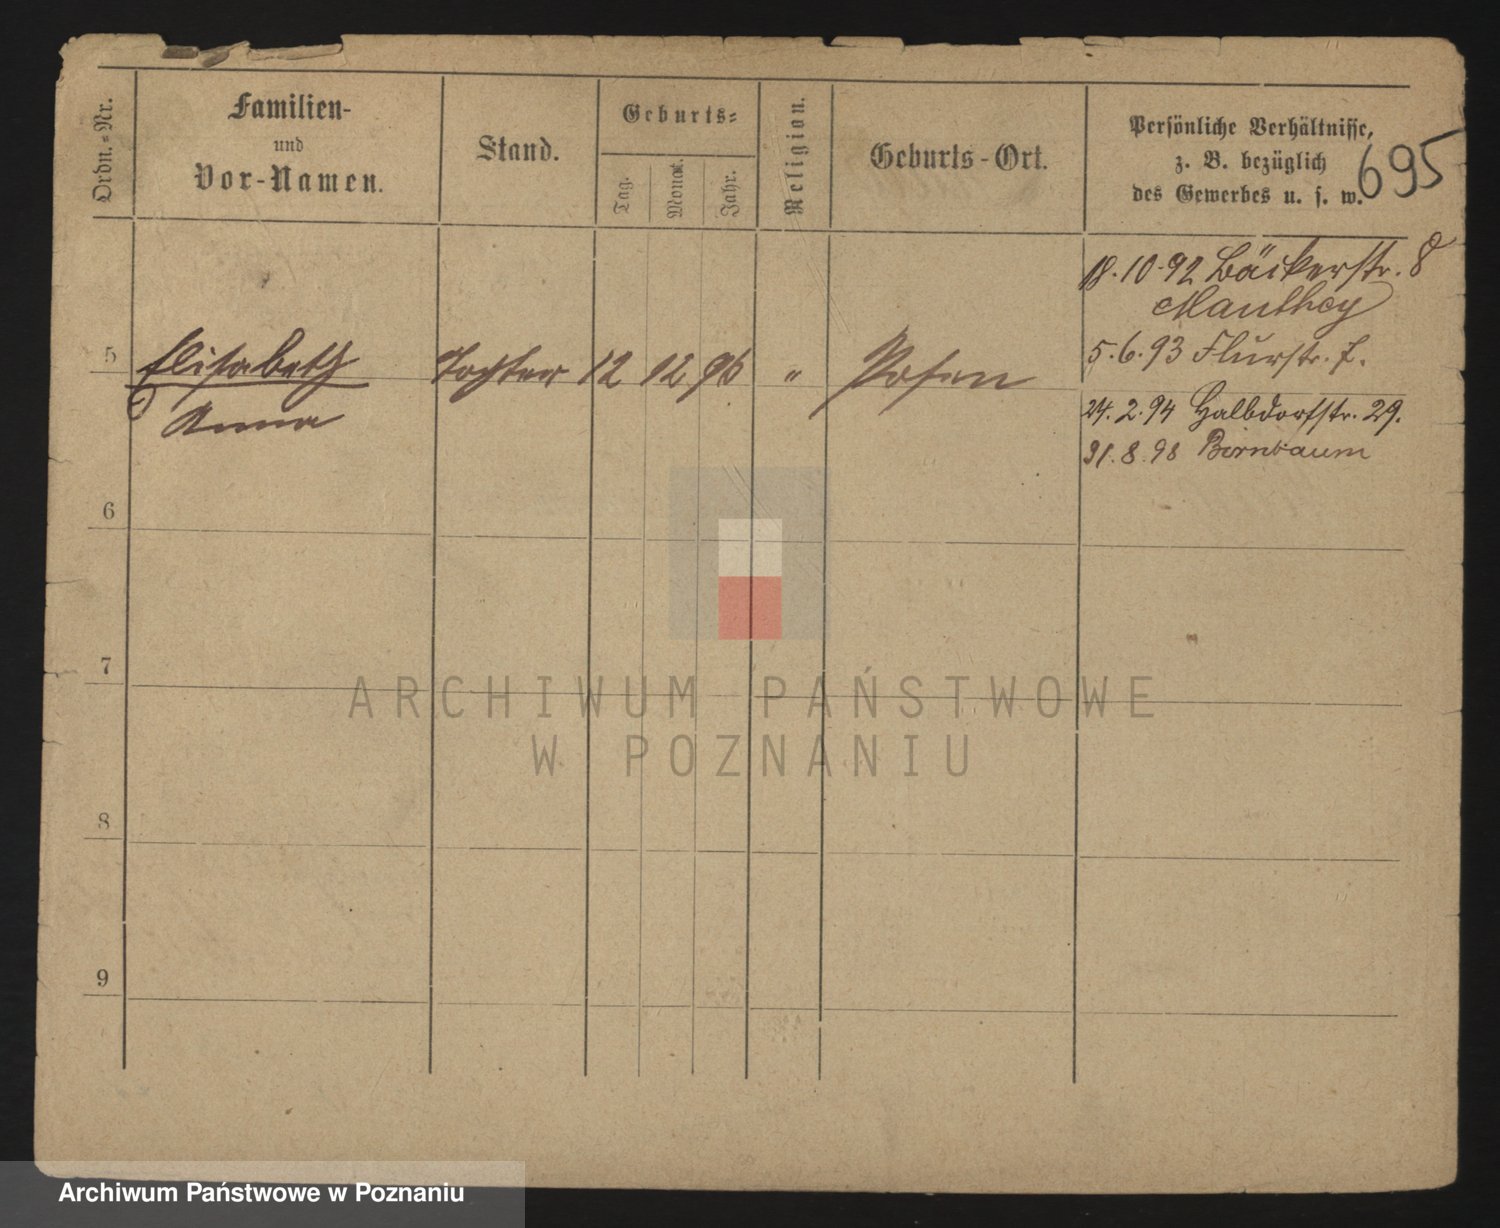 Ordn.-Nr.
Familien-
und
Vor-Namen.
Stand.
Geburts-
Tag.
Monat.
Jahr.
Religion.
Geburts-Ort.
Persönliche Verhältnisse,
z. B. bezüglich
des Gewerbes u. s. w.
695
18.10.92 Bäckerstr. 8
Manthey
5.6.93 Flurstr. 7.
24.2.94 Halbdorfstr. 29.
31.8.98 Birnbaum
5 Elisabeth Tochter 12 12 96 " Posen
Anna
6
7
8
9
ARCHIWUM PAŃSTWOWE
W POZNANIU
Archiwum Państwowe w Poznaniu